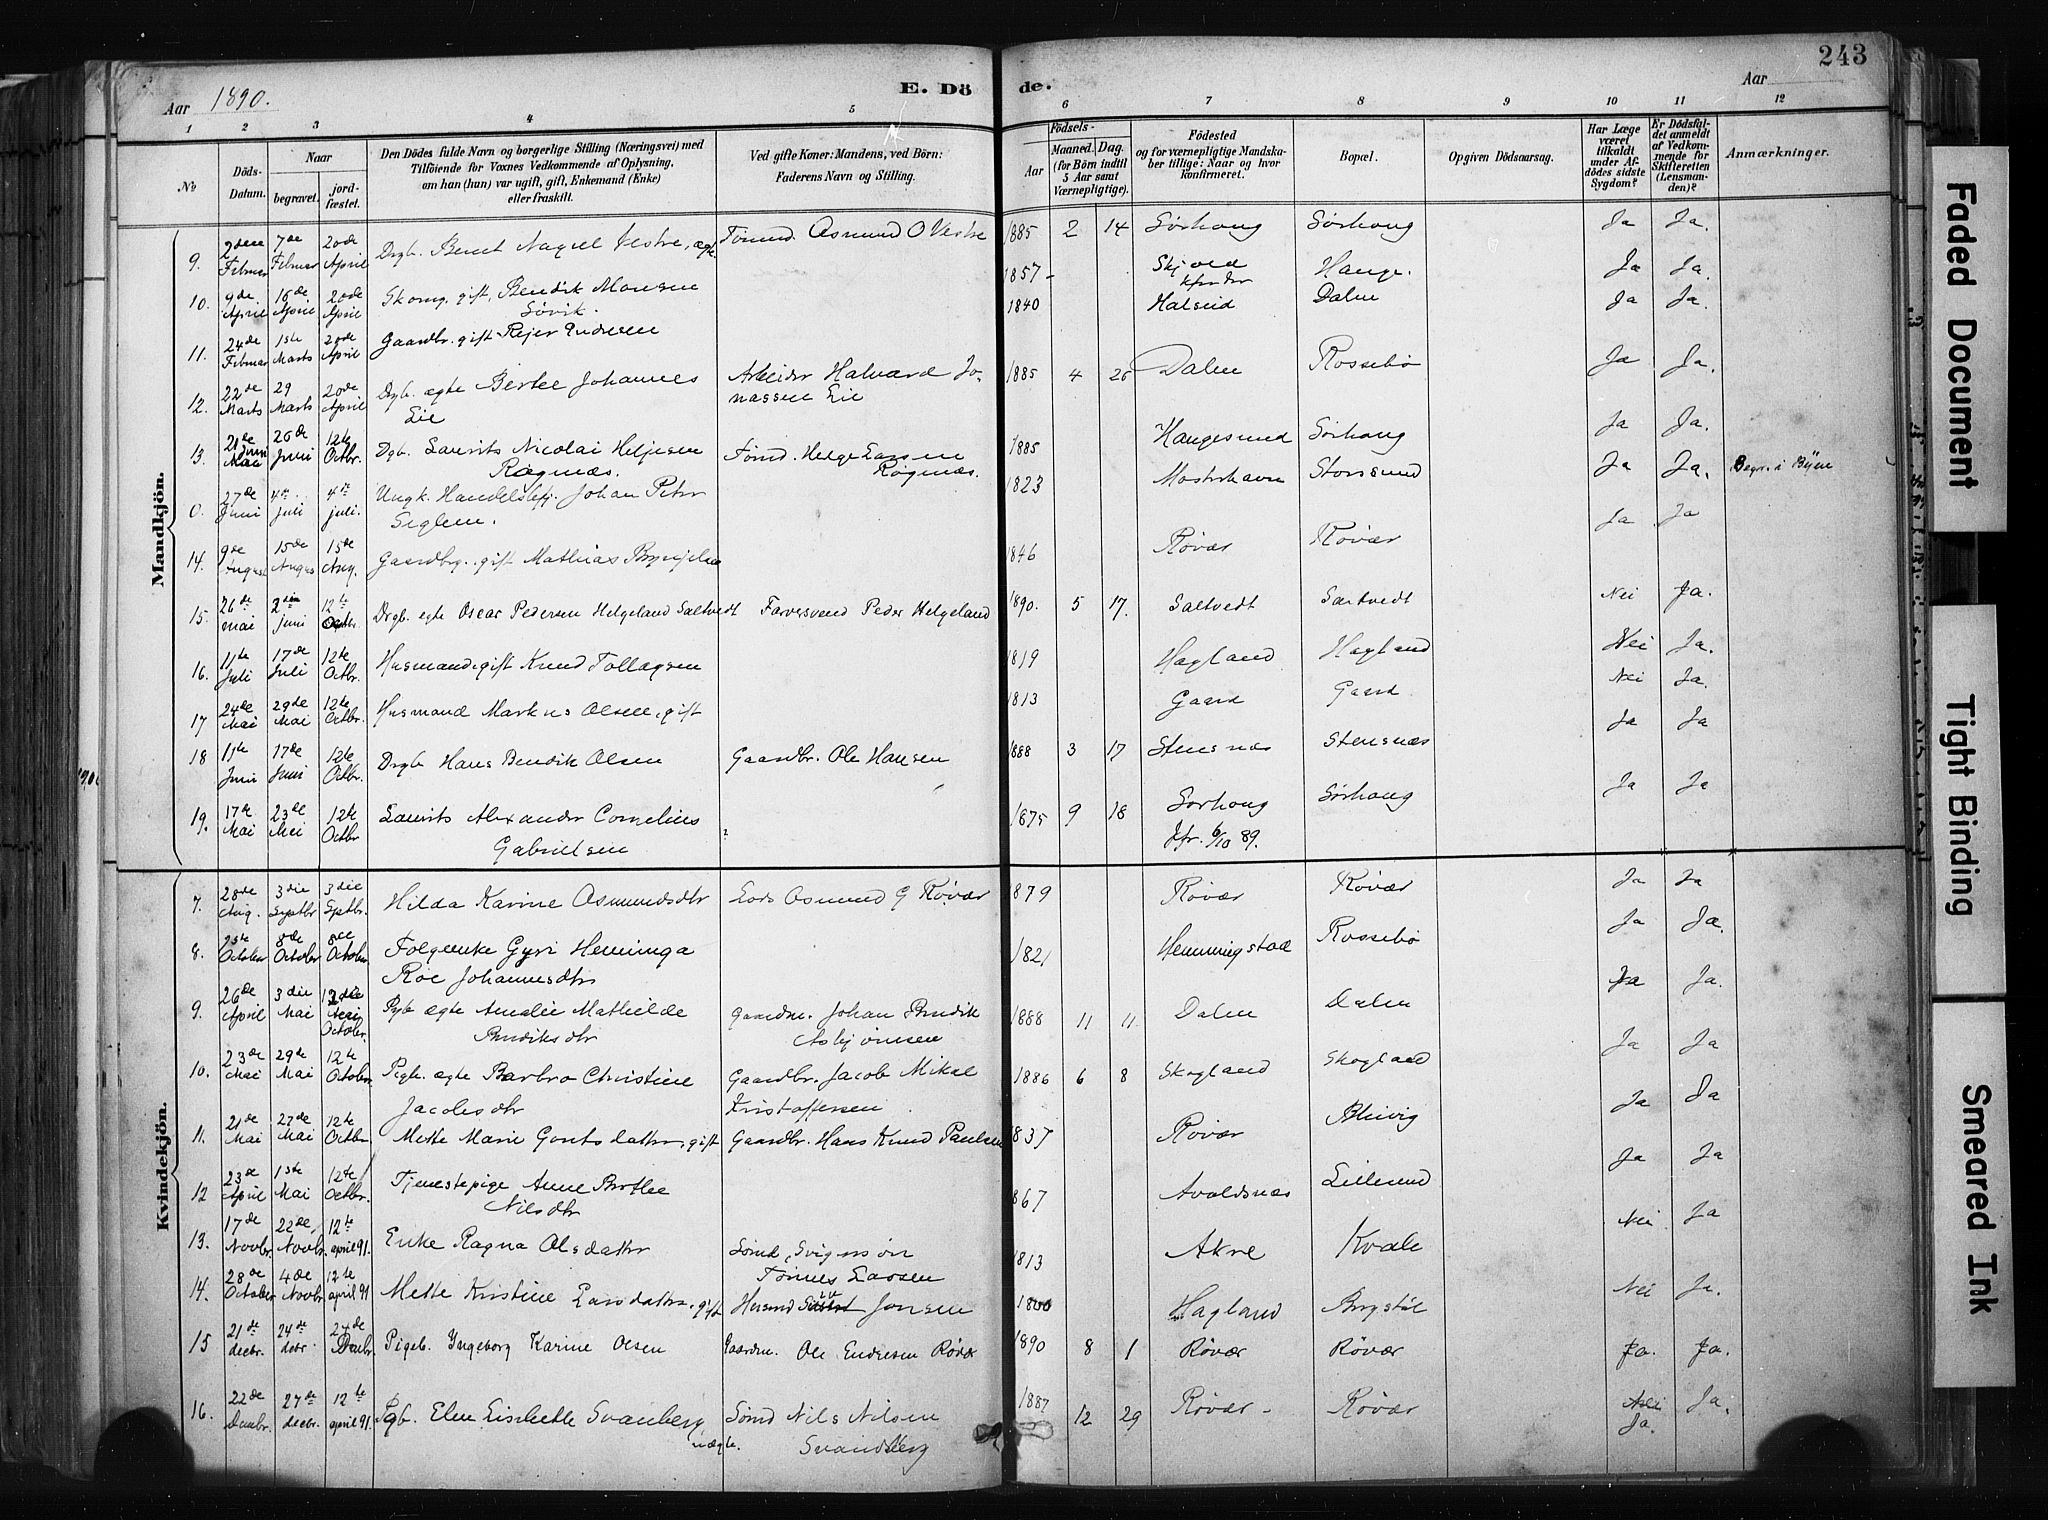 243
Aar 1890.
E. Dö
de.
Aar
1 2 3 4 5 6 7 8 9 10 11 12
No
Döds-Datum.
Naar
begravet.
jord-fæstet.
Den Dödes fulde Navn og borgerlige Stilling (Næringsvei) med
Tilföiende for Voxnes Vedkommende af Oplysning,
om han (hun) var ugift, gift, Enkemand (Enke)
eller fraskilt.
Ved gifte Koner: Mandens, ved Börn:
Faderens Navn og Stilling.
Födsels-
Aar
Maaned. Dag.
(for Börn indtil
5 Aar samt
Værnepligtige).
Födested
og for værnepligtige Mandska-
ber tillige: Naar og hvor
konfirmeret.
Bopæl.
Opgiven Dödsaarsag.
Har Læge
været
tilkaldt
under Af-
dödes sidste
Sygdom?
Er Dödsfal-
det anmeldt
af Vedkom-
mende for
Skifteretten
(Lensman-
den)?
Anmærkninger.
Mandkjön.
9. 2den Februar 7de Februar 20de April Drgb. Bernt Nagel Vestre, ægte. Tømmd. Asmund O Vestre 1885 2 14 Sørhaug Sørhaug Ja Ja.
10. 9de April 16de April 20de April Skomg. gift, Bendik Monsen Søvik. 1857 Skjold Hauge. Ja Ja.
11. 24de Februar 1ste Marts 20de April Gaardbr. gift Rejer Endresen 1840 Halseid Dalen Ja Ja.
12. 22de Marts 29 Marts 20de April Drgb. ægte Bertel Johannes Lie Arbeider Halvard Jo-nassen Lie 1885 4 26 Dalen Rossebø Ja Ja.
13. 21de Juni Mai 26de Juni 12te Octbr. Dgb. Laurits Nicolai Heljesen Røgnæs. Tømd. Helge Larsen Røgnæs. 1885 Haugesund Sørhaug Ja Ja.
0. 27de Juni 4de Juli 4de juli. Ungk. Handelsbetj. Johan Peter Seglem. 1823 Mosterhavn Storesund Ja Ja. Begr. i Byen
14. 9de August 15de August 15de Aug. Gaardbrg. gift Mathias Brynjelsen 1846 Røvær Røvær Ja Ja
15. 26de mai 2den Juni 12te Octbr. Drgb. ægte Oscar Pedersen Helgeland Saltvedt Farversvend Peder Helgeland 1890. 5 17. Saltvedt Saltvedt Nei Ja.
16. 11te Juli 17de Juli 12te Octbr. Husmand, gift Knud Tollagsen 1819 Hagland Hagland Nei Ja.
17 24de Mai 29de Mai 12te Octbr. Husmand Markus Olsen, gift 1813 Gaard Gaard Nei Ja.
18 11te Juni 17de Juni 12te Octbr. Drgb Hans Bendik Olsen Gaardbr. Ole Hansen 1888 3 17 Stensnæs Stensnæs Ja Ja
19. 17de Mai 23de Mei 12te Octbr Laurits Alexander Cornelius Gabrielsen ? 1875 9 18 Sørhaug Kfr. 6/10 89. Sørhaug Ja Ja
Kvindekjön.
7. 28de Aug. 3die Septbr 3die Septbr. Hilda Karine Asmundsdtr Lods Asmund G Røvær 1879 Røvær Røvær Ja Ja
8. 1ste October 8de October 8de October Folgeenke Gyri Heminga Roe Johannesdtr 1821 Hemmingstad Rossebø Ja Ja.
9. 26de April 3die Mai 12te October. Pgb ægte Amalie Mathilde Bendiksdtr Gaardm. Johan Bendik Asbjørnsen 1888 11 11 Dalen Dalen Ja Ja.
10. 23de Mai 29de Mai 12te October Pigb. ægte Barbro Christine Jacobsdtr Gaardbr. Jacob Mikal Kristoffersen 1886 6 8 Skogland Skogland Ja Ja
11. 21de Mai 27de Mai 12te Octbr. Mette Marie Gautsdatter, gift Gaardbr. Hans Knud Paulsen 1837 Røvær Bleivig Ja Ja
12 23de April 1ste Mai 12te Octbr. Tjenestepige Anne Bertha Nilsdtr 1867 Avaldsnæs Lillesund Ja Ja
13. 17de Novbr. 22de Novbr. 12te april 91. Enke Ragna Olsdatter Sømd. Svigersøn Tønnes Larsen 1813 Akre Kvale Nei Ja
14. 28de October 4de Novbr 12te april 91 Mette Kristine Larsdatter, gift Husmd Jonsen 1800 Hagland Brystøl Nei Ja.
15 21de decbr. 24de debr. 24de Decbr. Pigeb. Ingeborg Karine Olsen Gaardm. Ole Endresen Røvær 1890 8 1 Røvær Røvær Ja. Ja.
16. 22de Decbr. 27de decbr. 12te april 91. Pgb. Elen Lisbette Svanberg uægte. Sømd Nils Nilsen Svandberg 1887 12 29 Røvær Røvær Nei Ja. Ja.
Faded Document
Tight Binding
Smeared Ink